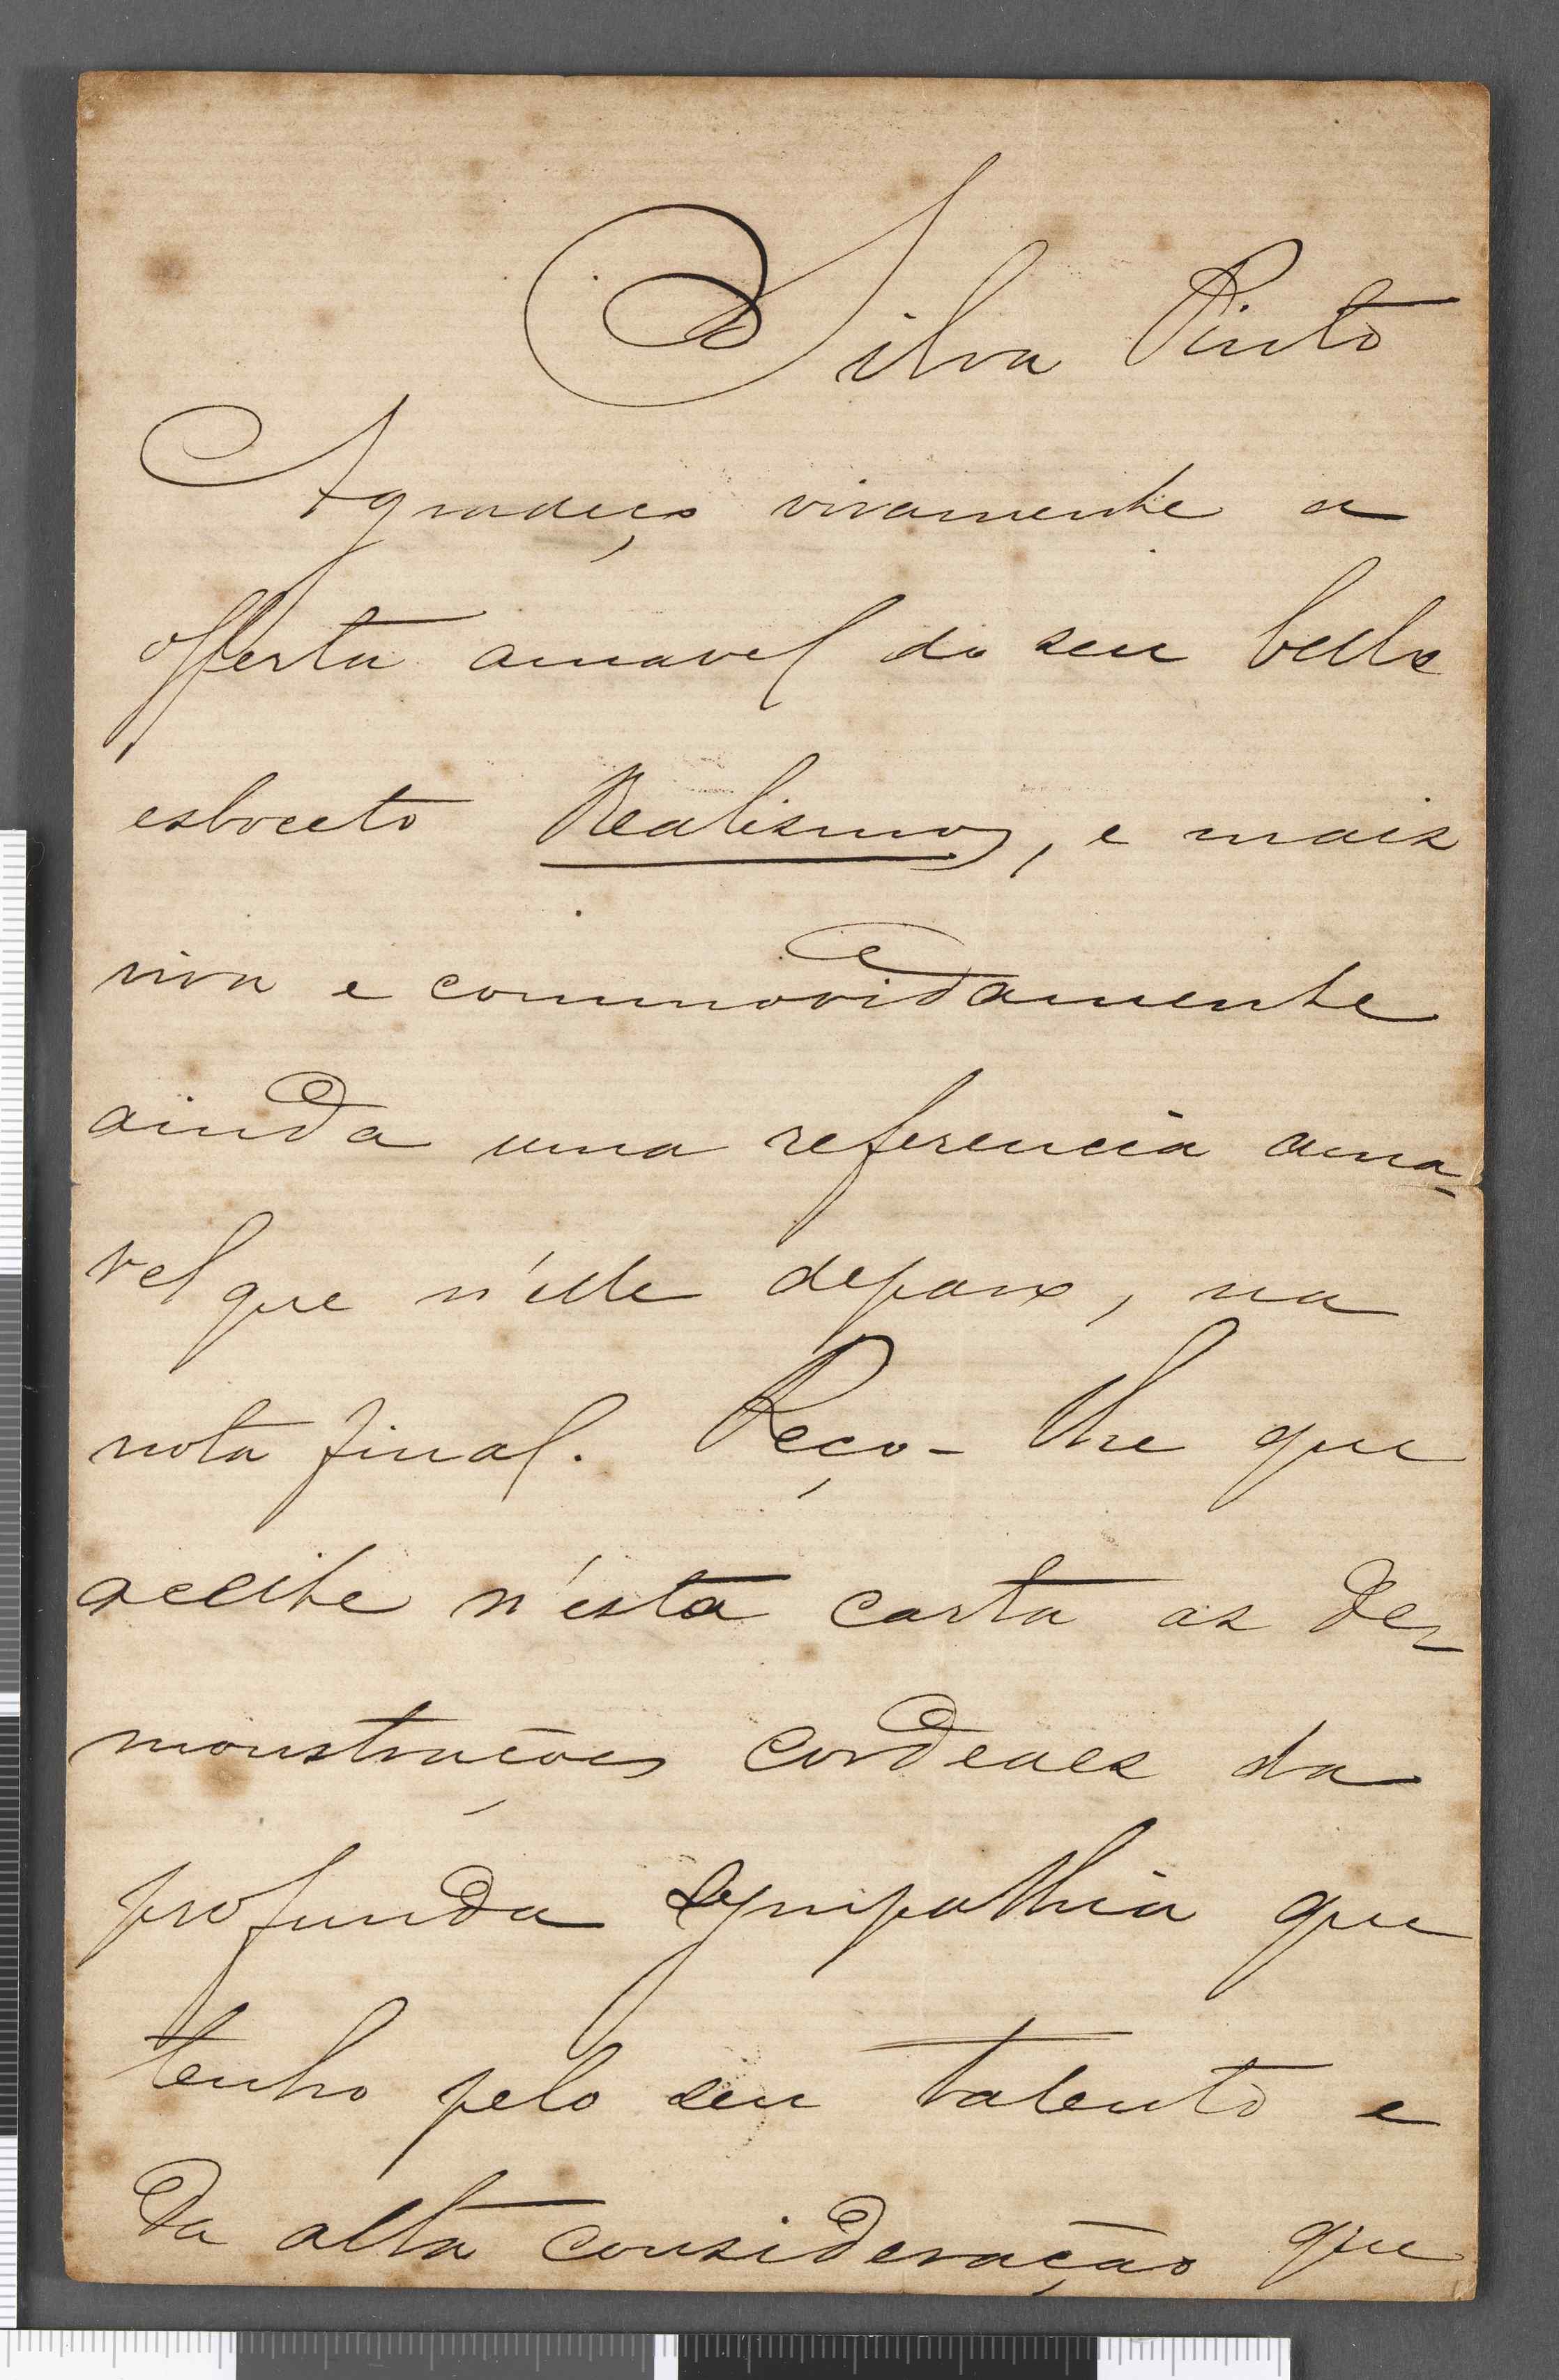 Silva Pinto
Agradeço vivamente a
offerta amavel do seu bello
esboceto Realismos, e mais
viva e commovidamente
ainda uma referencia ama-
vel que n'elle deparo, na
nota final. Peço-lhe que
aceite n'esta carta as de-
monstrações cordeaes da
profunda sympathia que
tenho pelo seu talento e
da alta consideração que